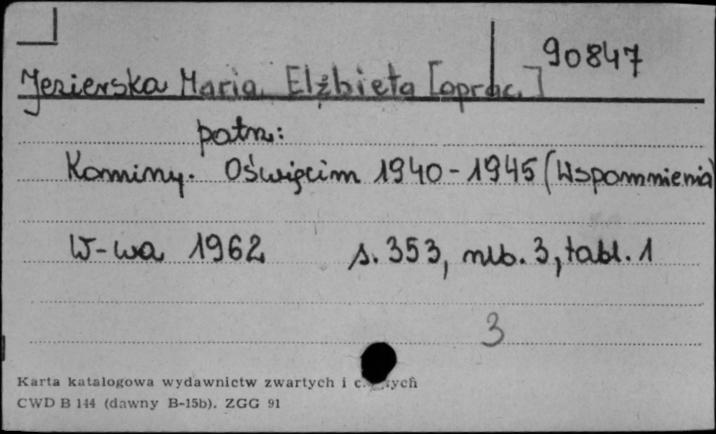 90847
Jezierska Maria Elżbieta [oprac.]
patrz:
Kominy. Oświęcim 1940-1945 (Wspomnienia)
W-wa 1962 s. 353, nlb. 3, tabl. 1
3
Karta katalogowa wydawnictw zwartych i
CWD B 144 (dawny B-15b). ZGG 91